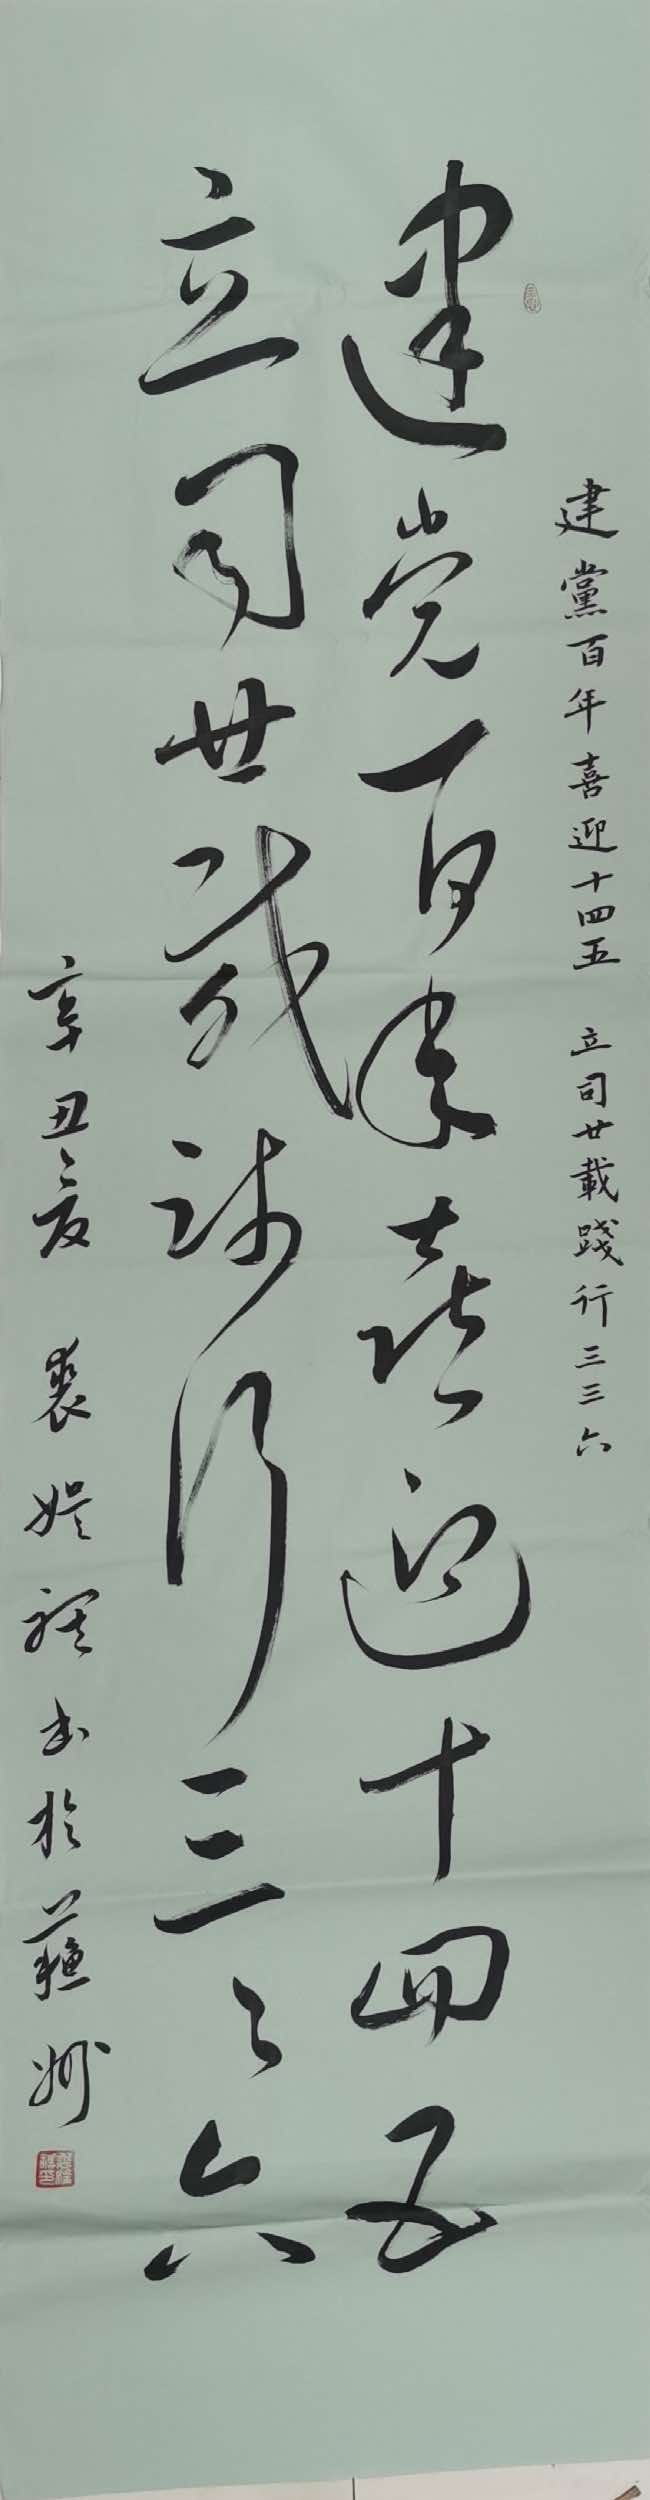 建黨百年喜迎十四五 立司廿載踐行三三六
建党百年喜迎十四五
立司廿載踐行三々六
辛丑夏 書於蘇州